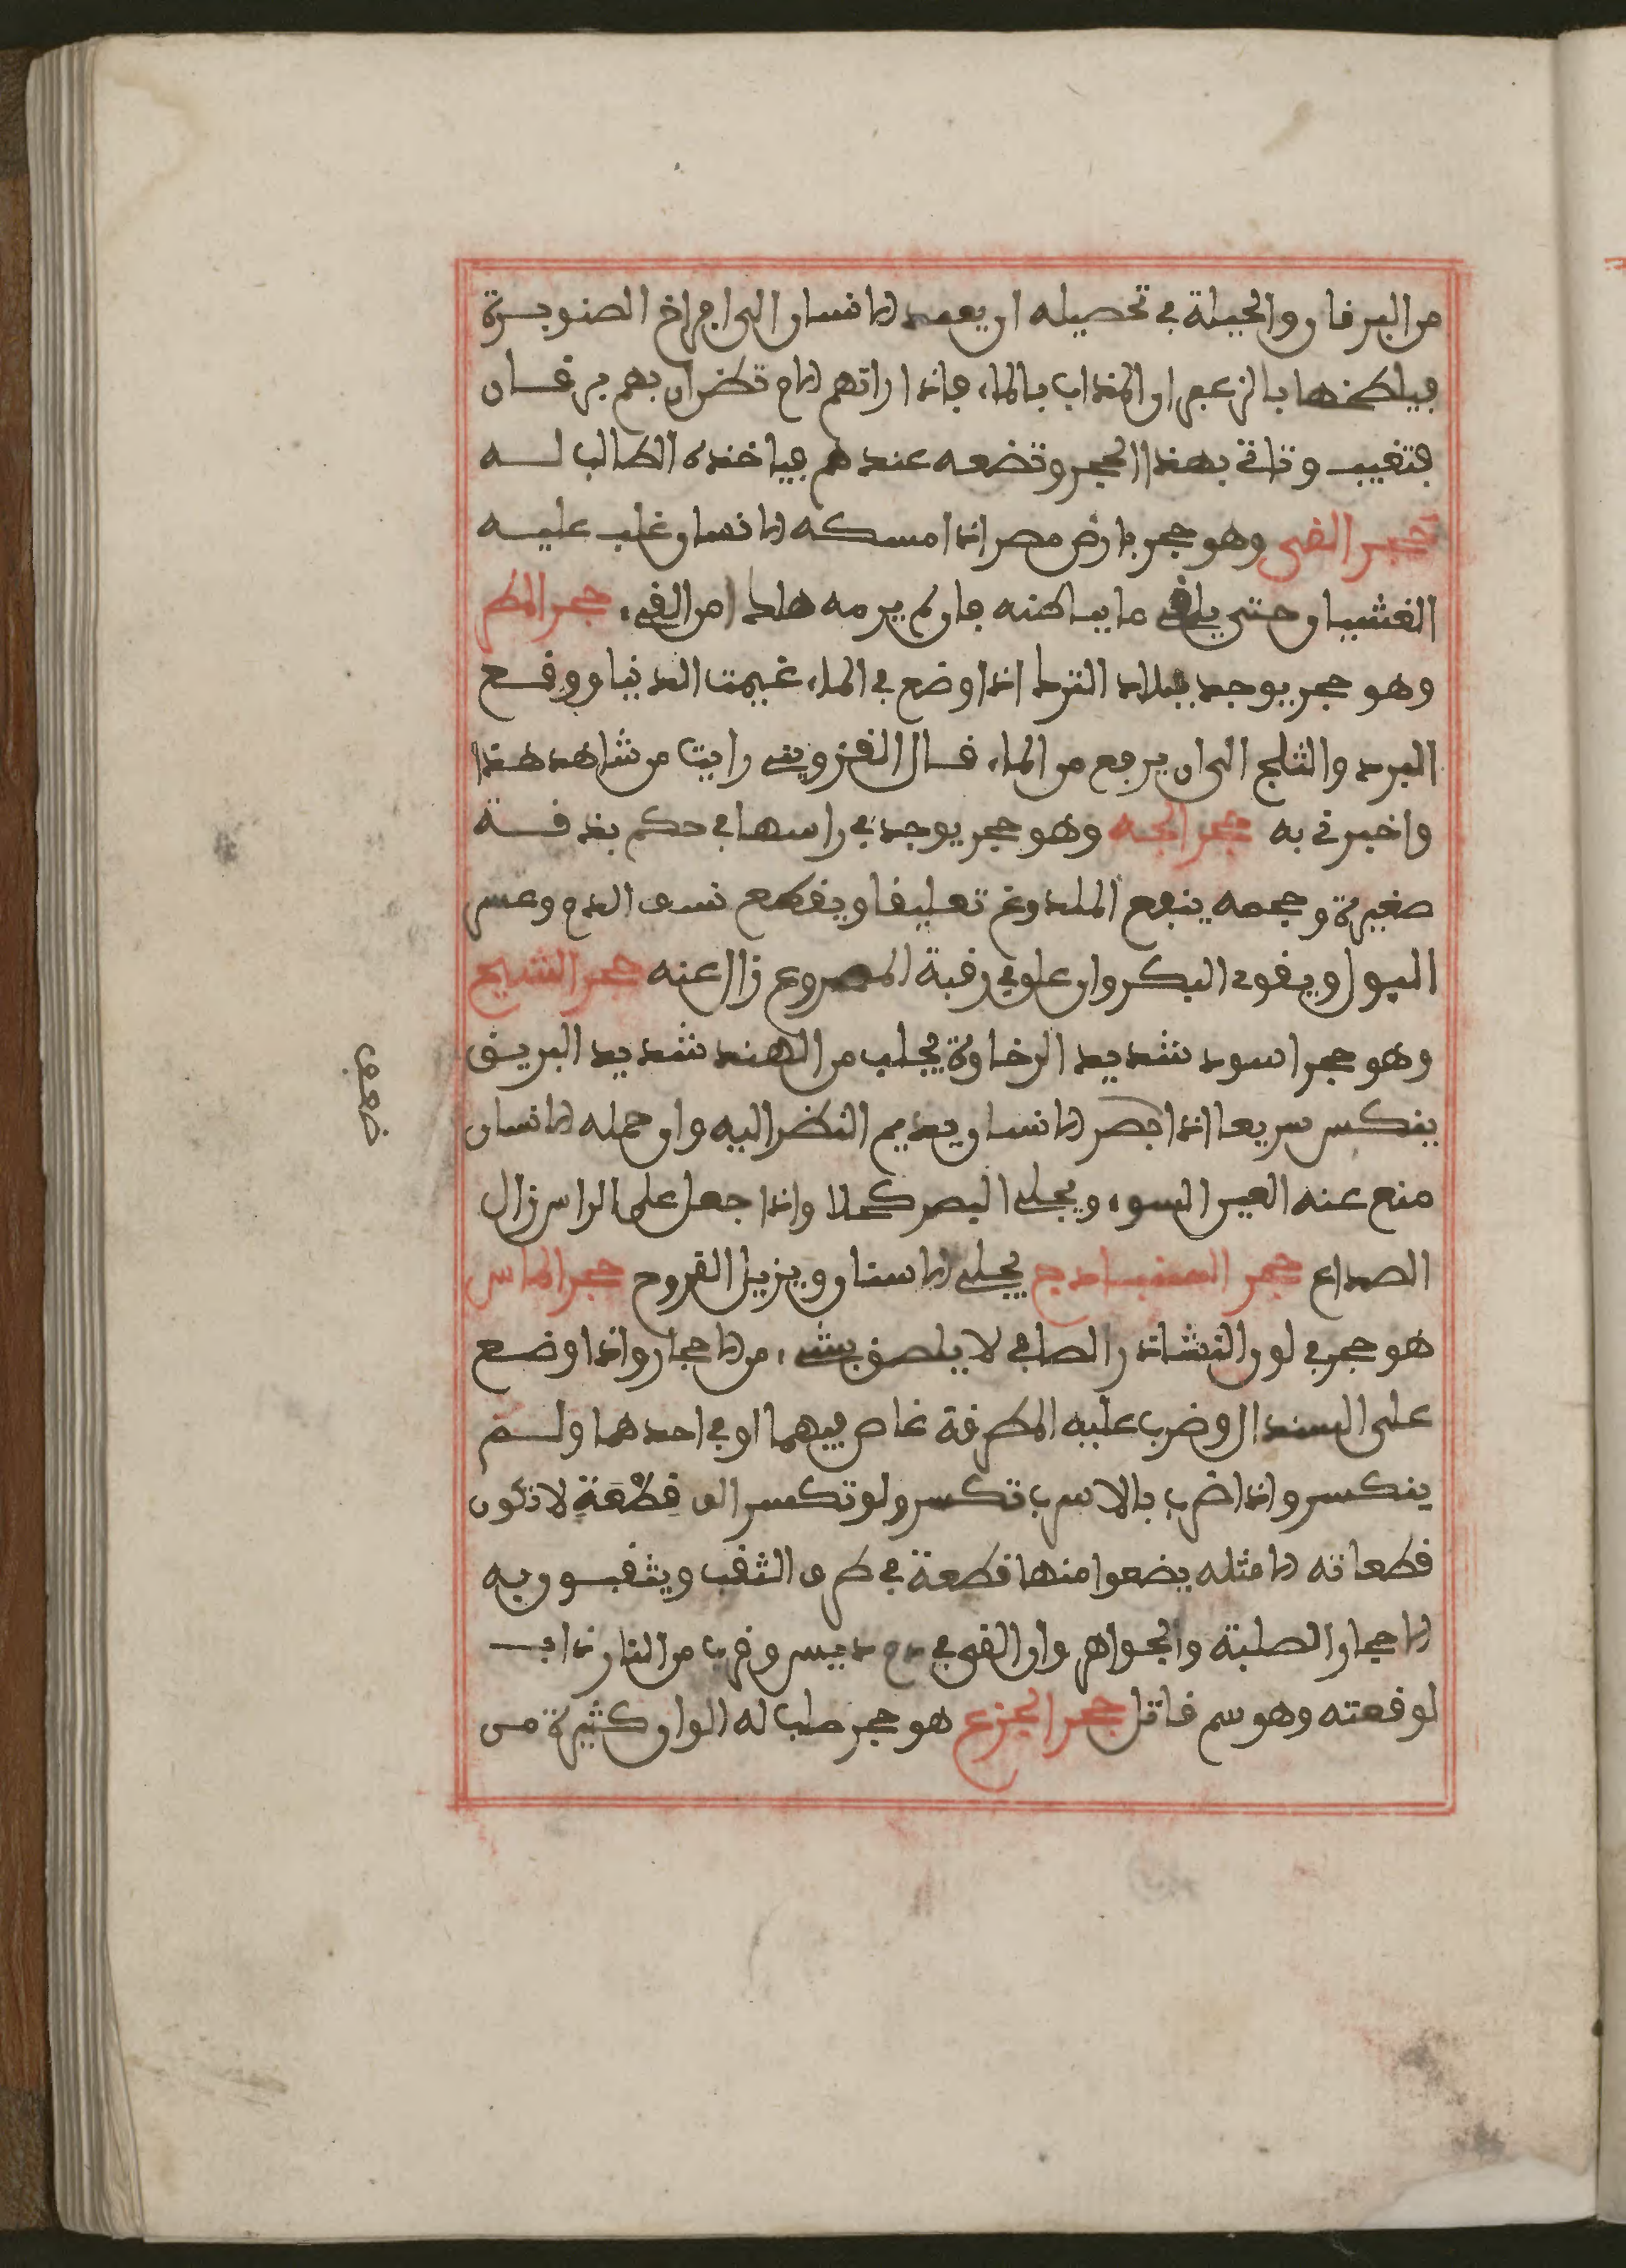 من اليرقان والحيلة في تحصيله ان يعمد الانسان الى افراخ الصنوبرة
فيلطخها بالزعفران المذاب بالماء فاذا راتهم الام تظن ان بهم يرقان
فتغيب وتاتي بهذا الحجر وتضعه عندهم فياخذه الطالب له
حجر القي وهو حجر بارض مصر اذا امسكه الانسان غلب عليه
الغثيان حتى يلقي ما بباطنه فان لم يرمه هلك من القيء حجر المطر
وهو حجر يوجد ببلاد الترك اذا وضع في الماء غيمت الدنيا ووقع
البرد والثلج الى ان يرفع من الماء قال القزويني رايت من شاهد هذا
واخبرني به حجر الحية وهو حجر يوجد في راسها في حكم بندقة
صغيرة وحجمه ينفع الملدوغ تعليقا ويقطع نسف الدم وعسر
البول ويقوي البكر وان علق في رقبة المصروع زال عنه حجر السبج
وهو حجر اسود شديد الرخاوة يجلب من الهند شديد البريق
ينكسر سريعا اذا بصر الانسان يديم النظر اليه وان حمله الانسان
منع عنه العين السوء ويجلي البصر كحلا واذا جعل على الراس زال
الصداع حجر السنبادج يجلي الاسنان ويزيل القروح حجر الماس
هو حجر في لون النشاذر الصافي لا يلصق بشيء من الاحجار واذا وضع
على السندال وضرب عليه المطرقة غاص فيهما او في احدهما ولم
ينكسر واذا ضرب بالاسرب تكسر ولو تكسر الف قِطْعَةٍ لا تكون
قطعاته الا مثله يضعوا منها قطعة في طرف الثقب ويثقبون به
الاحجار الصلبة والجواهر وان القي في دم تيس وقرب من النار ذاب
لوقعته وهو سم قاتل حجر الجزع هو حجر صلب له الوان كثيرة من